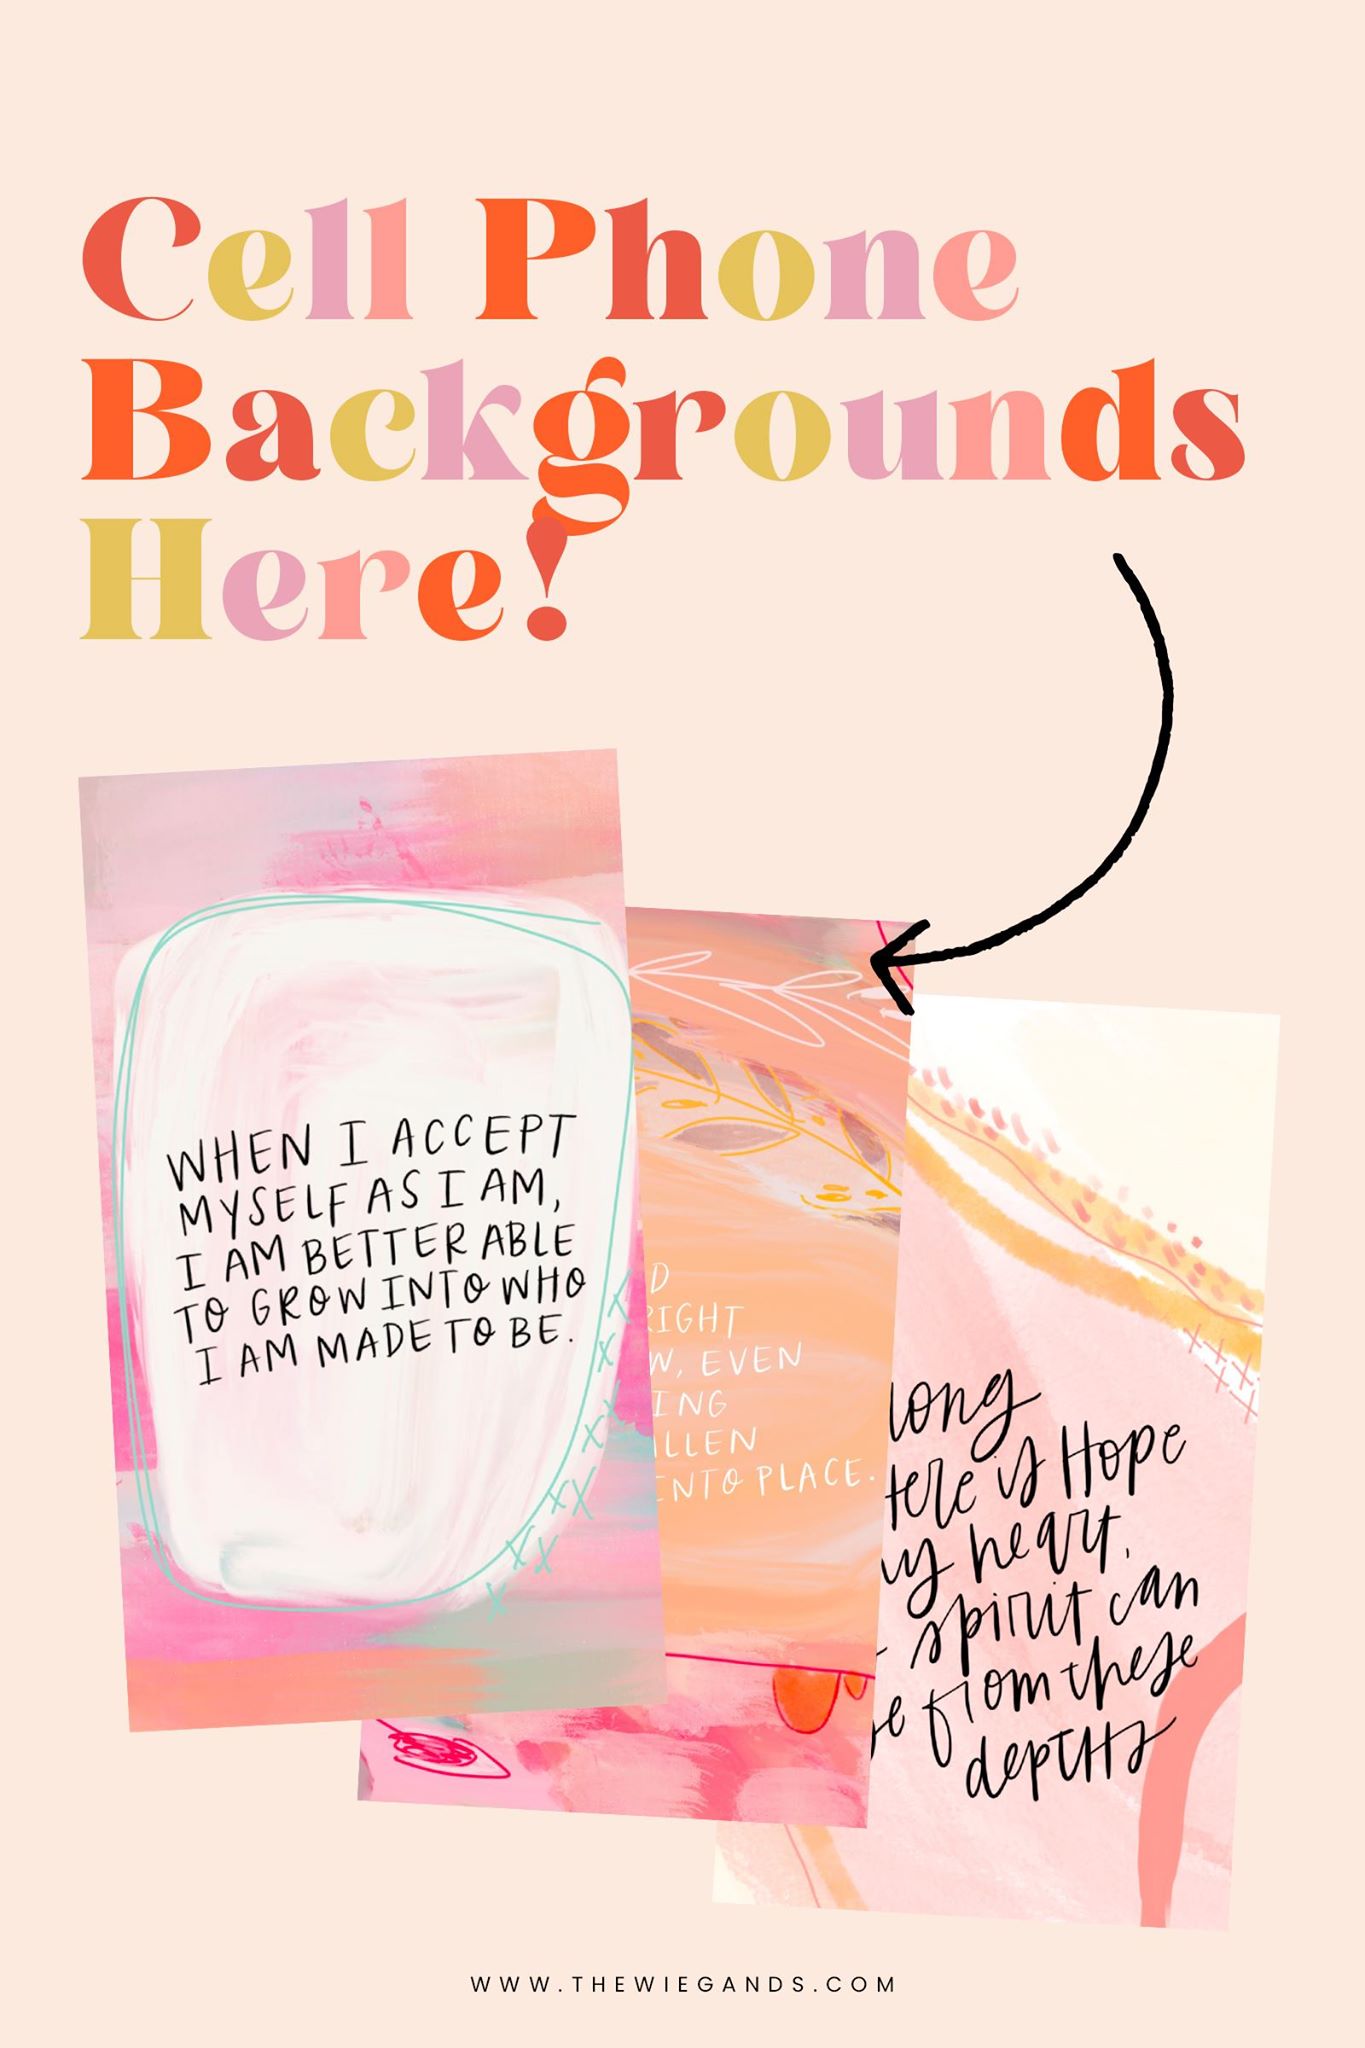 Cell Phone
Backgrounds
Here!
WHEN I ACCEPT
MYSELF AS I AM,
I AM BETTER ABLE
TO GROW INTO WHO
I AM MADE TO BE.
EVEN
INTO PLACE.
long
is Hope
heart,
spirit can
from these
depths
WWW.THEWIEGANDS.COM